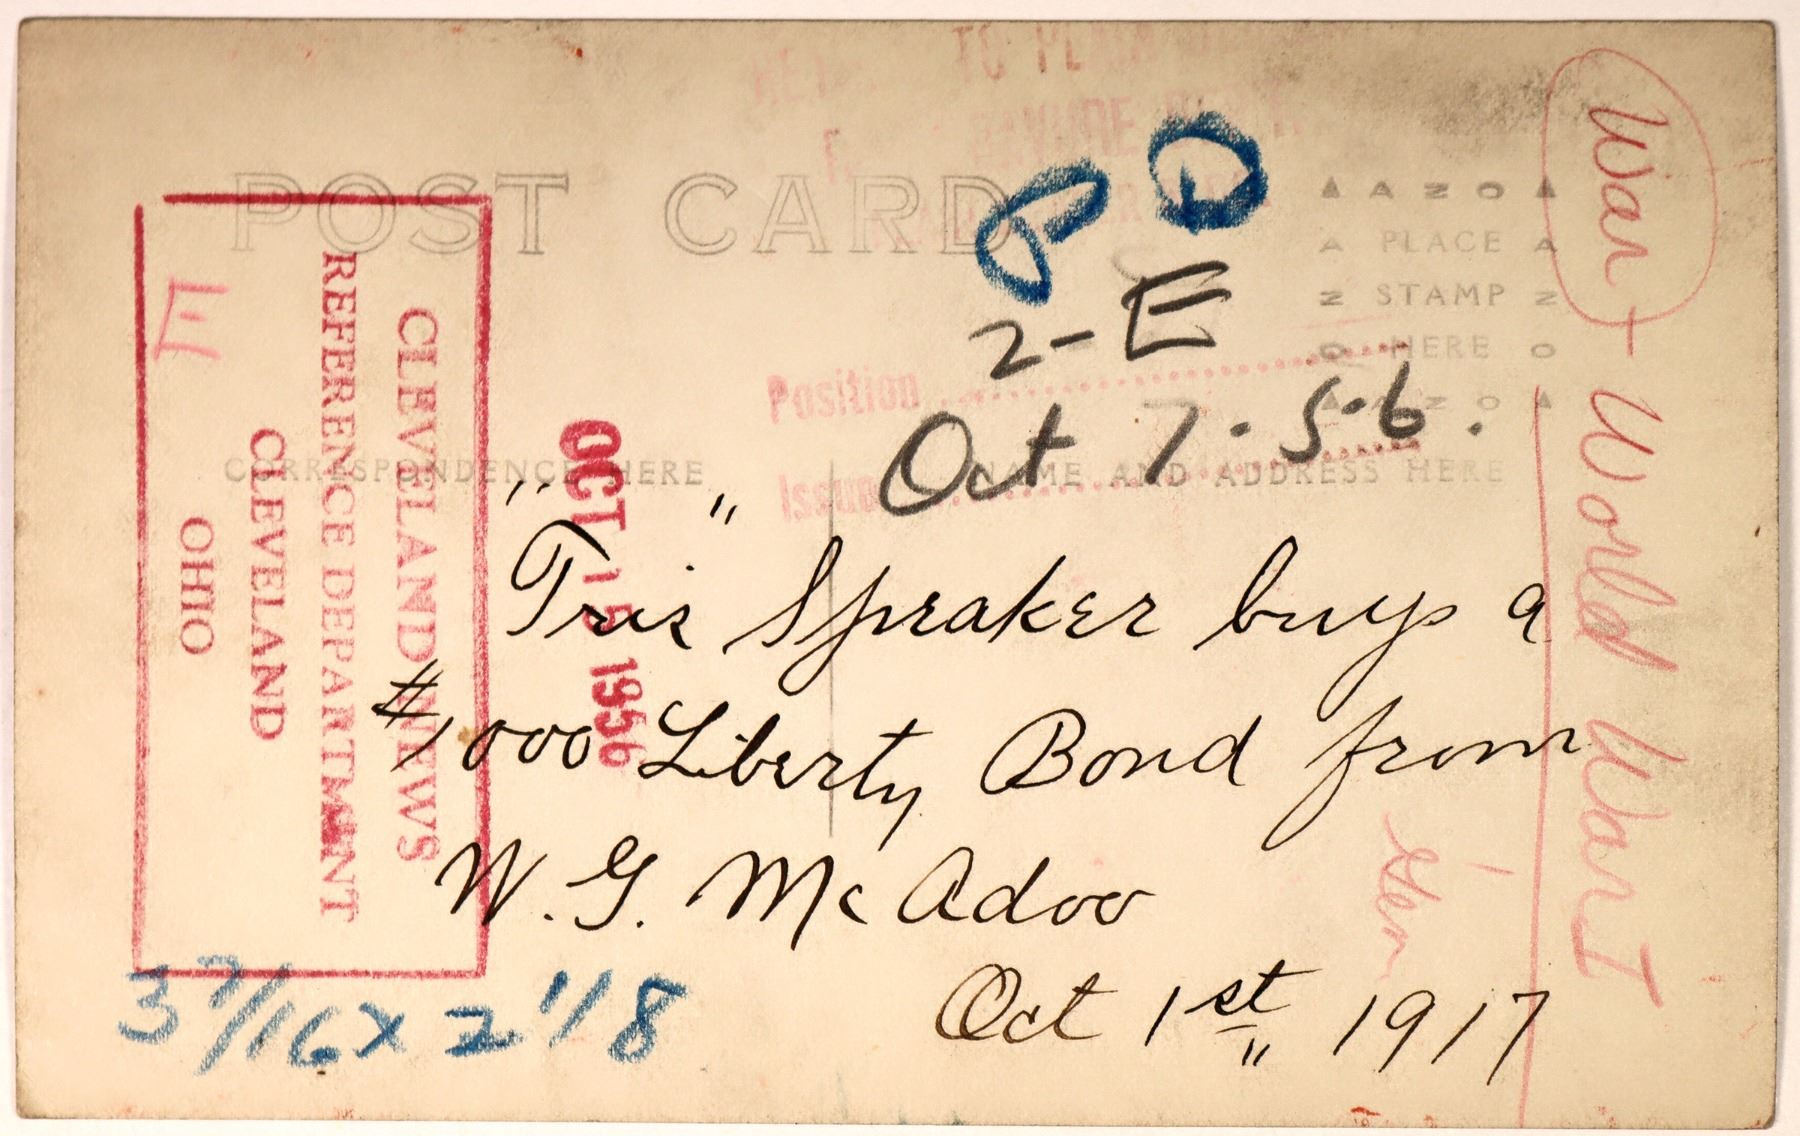 TO PLAIN
POST CARD
P D
2-E
Oct 7·56.
AZO
PLACE
STAMP
HERE
AZO
Position
Issue
CORRESPONDENCE HERE
NAME AND ADDRESS HERE
"Tris" Speaker buys a
$1,000 Liberty Bond from
W. G. McAdoo
Oct 1st 1917
3 7/16 x 2 1/8
OCT 15 1956
CLEVELAND NEWS
REFERENCE DEPARTMENT
CLEVELAND
OHIO
E
War + World War I
Gen